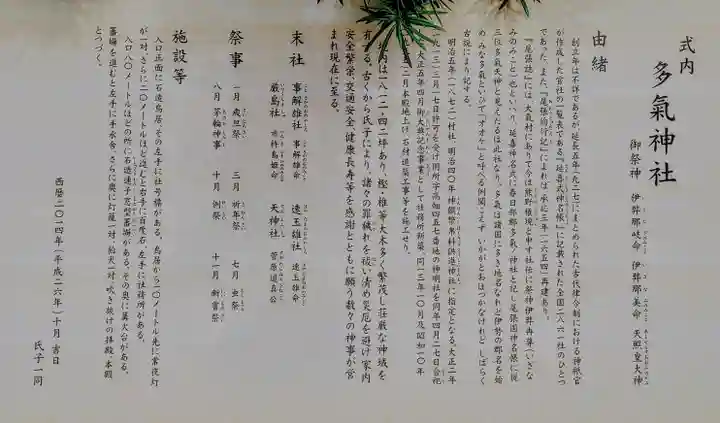 式内
多氣神社
御祭神 伊弉那岐命 伊弉那美命 天照皇大神
由緒
創立年は不詳であるが延長五年(九二七)にまとめられた古代律令制における神祇官
が作成した官社の一覧表である『延喜式神名帳』に記載された全国二八六一社のひとつ
であった。また、『尾張徇行記』によれば、承応三年(一六五四)再建あり。
『尾張誌』には 大氣村にありて今は熊野権現と申す社伝に祭神伊弉冉尊(いさな
みのみこと)也といへり、延喜神名式に春日部郡多氣ノ神社と記し尾張国神名帳に従
三位多氣天神と見えたるは此社なり。多氣は諸国に多き地名なれど伊勢の郡名を始
め みな多氣といひて「ヲオケ」と呼べる例聞こえず いかがとおほつかなけれど しばらく
古説により記する。
明治五年(一八七二)村社、明治四〇年神饌幣帛料供進神社に指定となる。大正二年
(一九一三)三月一七日許可を受け同所字高畑四五七番地の神明社を同年四月二七日合祀
大正五年四月御大典記念事業として社務所新築、同一三年一〇月及昭和一〇年
二月本殿地上げ、石材造築工事等を施工せり。
境内は一八一二・四二坪あり、樫・椎等大木多く繁茂し荘厳な神域を
有する。古くから氏子により、諸々の罪穢れを祓い清め災厄を避け家内
安全繁栄、交通安全、健康長寿等を感謝とともに願う数々の神事が営
まれ現在に至る。
末社
事解雄社 事解雄命 速玉雄社 速玉雄命
厳島社 市杵島姫命 天神社 菅原道真公
祭事
一月 歳旦祭 三月 祈年祭 七月 虫祭
八月 茅輪神事 十月 例祭 十一月 新嘗祭
施設等
入口正面に石造鳥居、その左手に社号標がある。鳥居から一〇メートル先に常夜灯
が一対、さらに二〇メートルほど進むと右手に百度石、左手に社務所がある。
入口八〇メートルほどの所に石造連子窓型蕃塀がある。その奥に篝火台がある。
蕃塀を進むと左手に手水舎、さらに奥に灯籠一対、狛犬一対、吹き抜けの拝殿、本殿
とつづく。
西暦二〇一四年(平成二六年)十月吉日
氏子一同